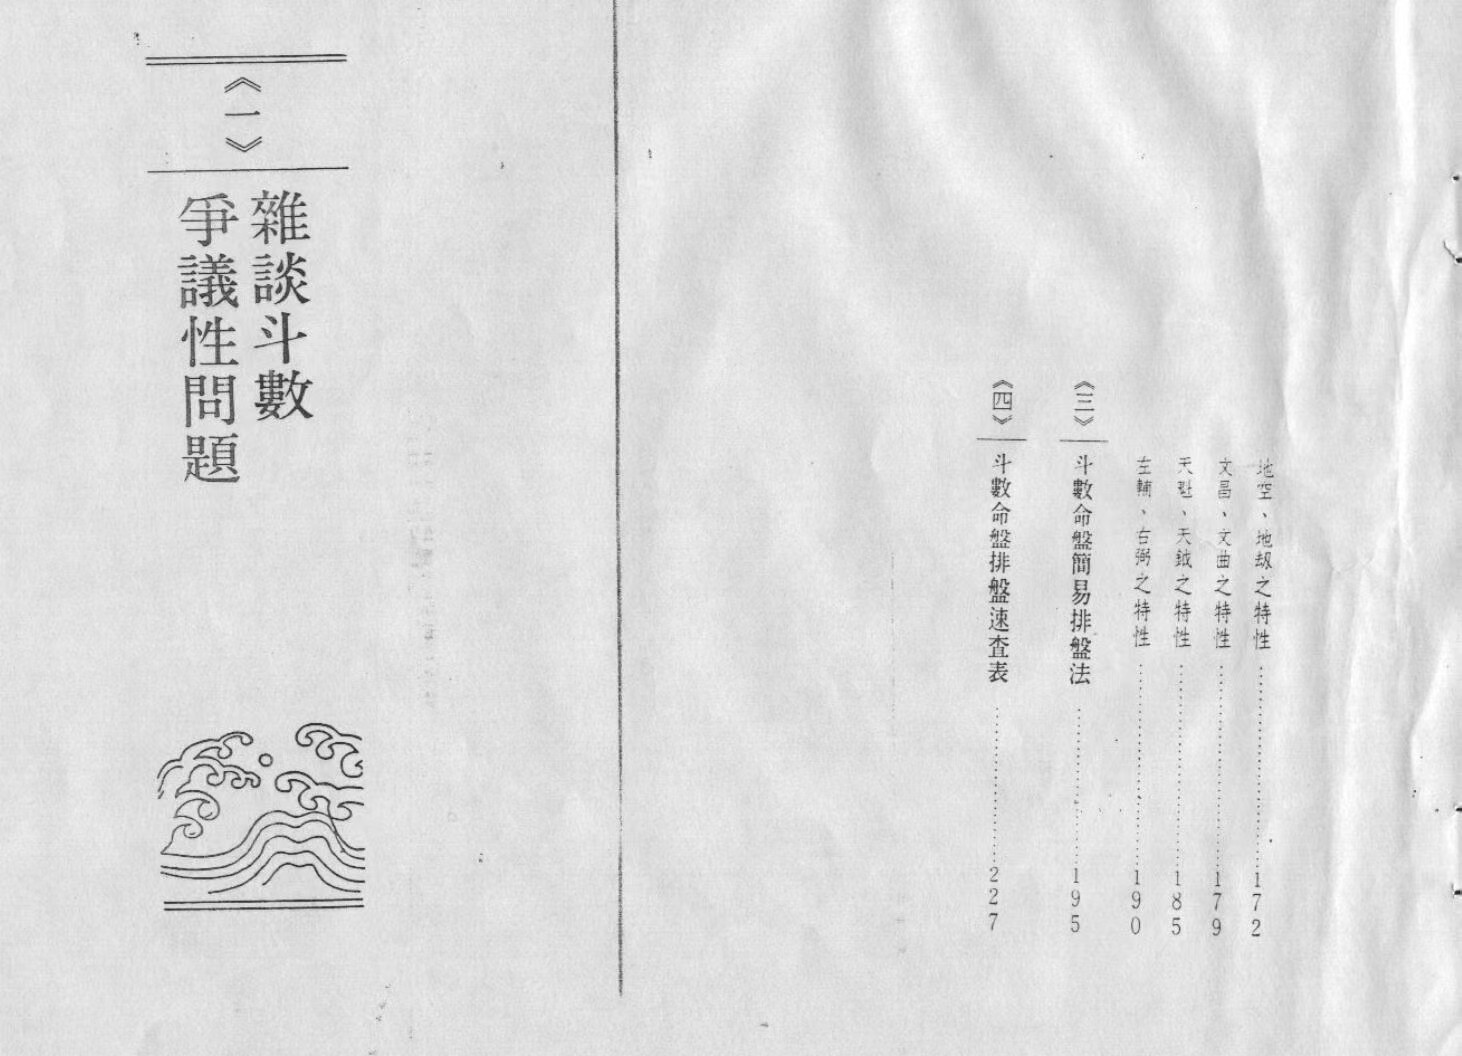 地空、地劫之特性…………172
文昌、文曲之特性…………179
天魁、天鉞之特性…………185
左輔、右弼之特性…………190
《三》斗數命盤簡易排盤法…………195
《四》斗數命盤排盤速查表…………227
《一》
雜談斗數
爭議性問題